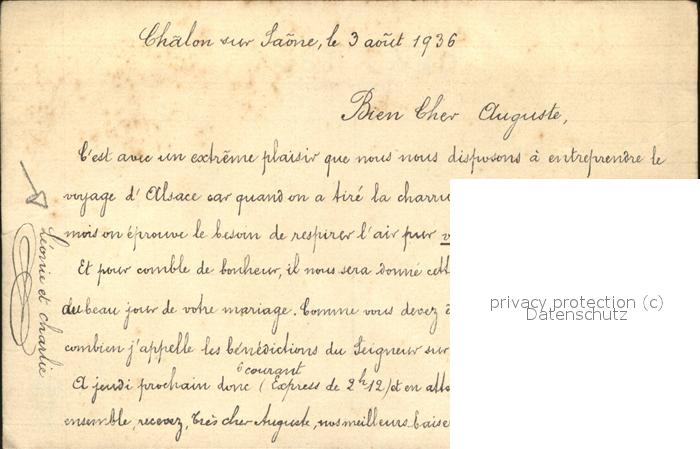 Châlon sur Saône, le 3 août 1936
Bien Cher Auguste,
C'est avec un extrême plaisir que nous nous disposons à entreprendre le
voyage d'Alsace car quand on a tiré la
mois on éprouve le besoin de respirer l'air pur
Et pour comble de bonheur, il nous sera donné
du beau jour de votre mariage. Comme vous devez
combien j'appelle les bénédictions du Seigneur sur
6 courant
A jeudi prochain donc (Express de 2h12) et en
ensemble, recevez, Très cher Auguste, nos meilleurs
Léonie et Charlie
privacy protection (c)
Datenschutz